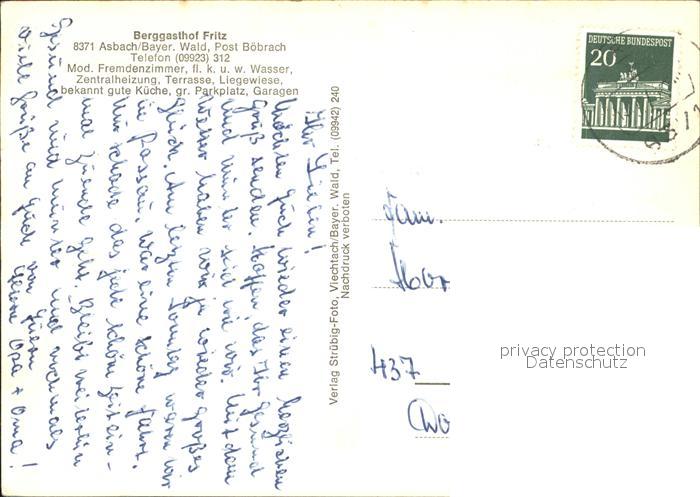 Berggasthof Fritz
8371 Asbach/Bayer. Wald, Post Böbrach
Telefon (09923) 312
Mod. Fremdenzimmer, fl. k. u. w. Wasser,
Zentralheizung, Terrasse, Liegewiese,
bekannt gute Küche, gr. Parkplatz, Garagen
Ihr Lieben!
Möchten Euch wieder einen herzlichen
Gruß senden. Hoffen, das Ihr gesund
und munter seid wie wir. Mit dem
Wetter haben wir ja wieder großes
Glück. Am letzten Sonntag waren wir
in Passau. War eine schöne Fahrt.
Nur schade das jede schöne Zeit ein-
mal zuende geht. Bleibt weiterhin
gesund und munter und nochmals
viele Grüße an Euch von Euren
lieben Opa + Oma!
Verlag Strübig-Foto, Viechtach/Bayer. Wald, Tel. (09942) 240
Nachdruck verboten
DEUTSCHE BUNDESPOST
20
Fam.
437
privacy protection
Datenschutz